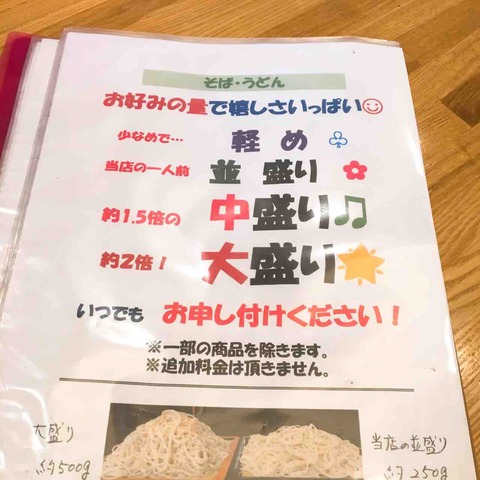 そば・うどん
お好みの量で嬉しさいっぱい
少なめで… 軽め
当店の一人前 並盛り
約1.5倍の 中盛り
約2倍! 大盛り
いつでも お申し付けください!
※一部の商品を除きます。
※追加料金は頂きません。
大盛り
約500g
当店の並盛り
約250g